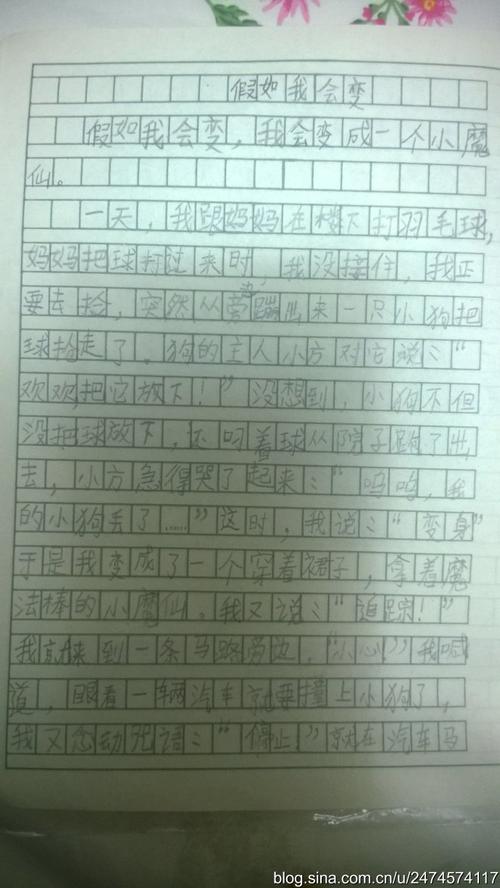 假如我会变
假如我会变，我会变成一个小魔
仙。
一天，我跟妈妈在楼下打羽毛球，
妈妈把球打过来时，我没接住，我正
要去捡，突然从旁边蹦出来一只小狗把
球抢走了。狗的主人小方对它说：“
欢欢，把它放下！”没想到，小狗不但
没把球放下，还叼着球从院子跑了出
去，小方急得哭了起来：“呜呜，我
的小狗丢了……”这时，我说：“变身”
于是我变成了一个穿着裙子，拿着魔
法棒的小魔仙。我又说：“追踪！”
我就来到一条马路旁边，“小心！”我喊
道，眼看一辆汽车就要撞上小狗了，
我又念动咒语：“停止”就在汽车马
blog.sina.com.cn/u/2474574117